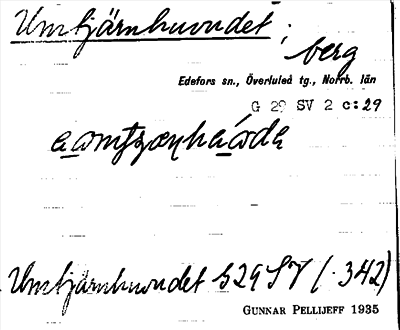 Umtjärnhuvudet;
berg
Edefors sn., Överluleå tg., Norrb. län
G 29 SV 2 c:29
Umtjärnhuvudet G29SV (. 342)
GUNNAR PELLIJEFF 1935